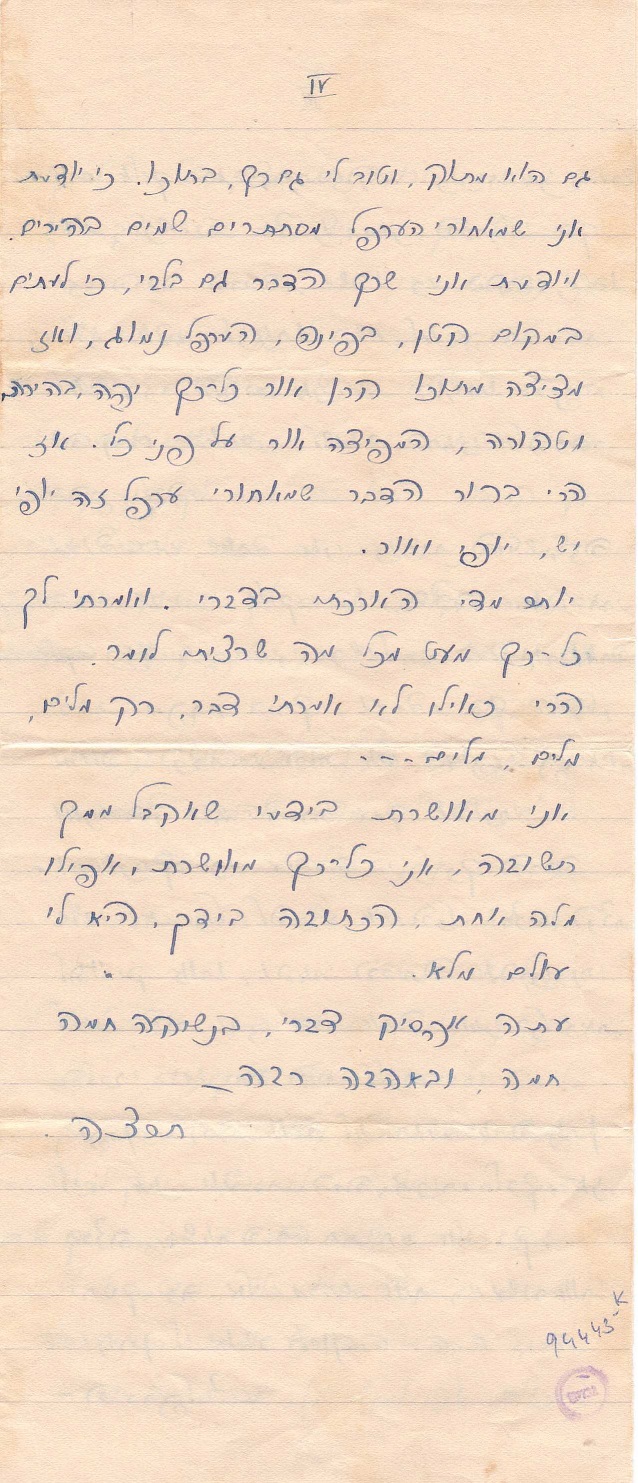 IV
גם הוא מתוק, וטוב לי גם כך, בתוכו. כי יודעת
אני שמאחורי הערפל מסתתרים שמים בהירים.
ויודעת אני שכך הדבר גם בלבי, כי לעתים
במקום קטן, בפינה, הערפל נמוג, ואז
מציצה מתוכו קרן אור כל-כך יפה, בהירה,
וטהורה, המפיצה אור על פני כל. אז
הרי ברור הדבר שמאחורי ערפל זה יופי
יש, יופי ואור.
יותר מדי הארכתי בדברי. ואמרתי לך
כל-כך מעט מכל מה שרציתי לומר.
הרי כאילו לא אמרתי דבר, רק מלים,
מלים, מלים - - -
אני מאושרת בידעי שאקבל ממך
תשובה, אני כל-כך מאושרת, אפילו
מלה אחת, הכתובה בידך, היא לי
עולם מלא.
עתה אפסיק דברי, בנשיקה חמה
חמה, ובאהבה רבה
94443-א